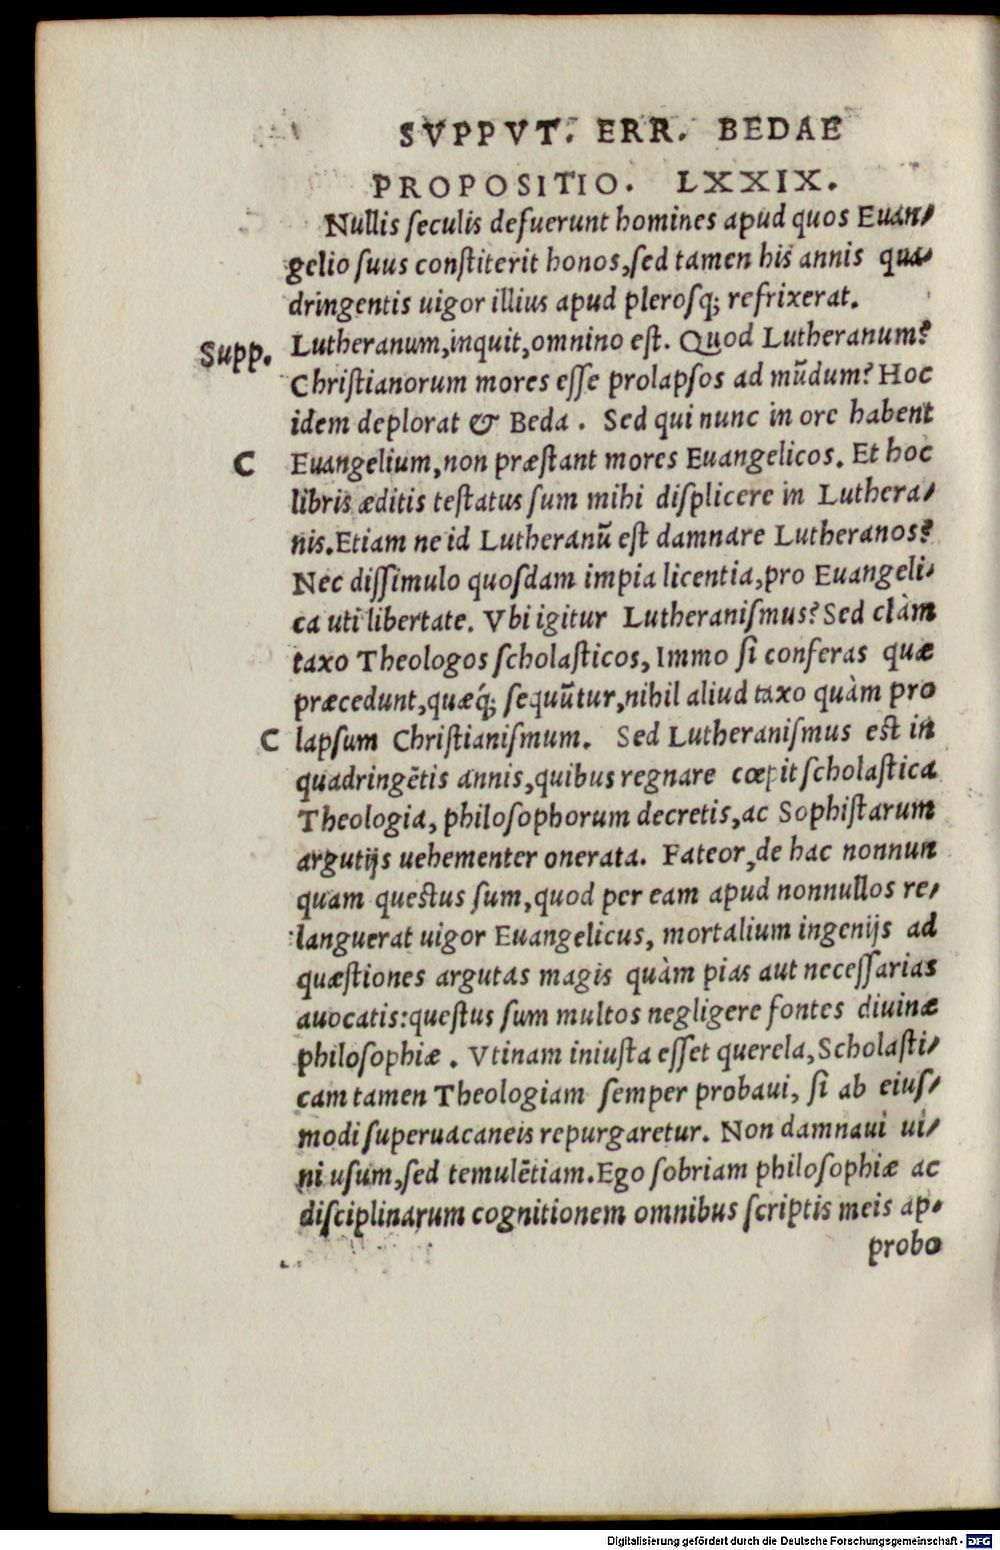 SVPPVT. ERR. BEDAE
PROPOSITIO. LXXIX.
Nullis ſeculis defuerunt homines apud quos Euan-
gelio ſuus conſtiterit honos, ſed tamen his annis qua-
dringentis uigor illius apud pleroſq; refrixerat.
Supp. Lutheranum, inquit, omnino eſt. Quod Lutheranum?
Chriſtianorum mores eſſe prolapſos ad mũdum? Hoc
idem deplorat & Beda. Sed qui nunc in ore habent
C Euangelium, non præſtant mores Euangelicos. Et hoc
libris æditis teſtatus ſum mihi diſplicere in Luthera-
nis. Etiam ne id Lutheranũ eſt damnare Lutheranos?
Nec diſſimulo quoſdam impia licentia, pro Euangeli-
ca uti libertate. Vbi igitur Lutheraniſmus? Sed clàm
taxo Theologos ſcholaſticos, Immo ſi conferas quæ
præcedunt, quæq́; ſequũtur, nihil aliud taxo quàm pro
C lapſum Chriſtianiſmum. Sed Lutheraniſmus eſt in
quadringẽtis annis, quibus regnare cœpit ſcholaſtica
Theologia, philoſophorum decretis, ac Sophiſtarum
argutijs uehementer onerata. Fateor, de hac nonnun
quam queſtus ſum, quod per eam apud nonnullos re-
languerat uigor Euangelicus, mortalium ingenijs ad
quæſtiones argutas magis quàm pias aut neceſſarias
auocatis: queſtus ſum multos negligere fontes diuinæ
philoſophiæ. Vtinam iniuſta eſſet querela, Scholaſti-
cam tamen Theologiam ſemper probaui, ſi ab eiuſ-
modi ſuperuacaneis repurgaretur. Non damnaui ui-
ni uſum, ſed temulẽtiam. Ego ſobriam philoſophiæ ac
diſciplinarum cognitionem omnibus ſcriptis meis ap-
probo
Digitalisierung gefördert durch die Deutsche Forschungsgemeinschaft - DFG